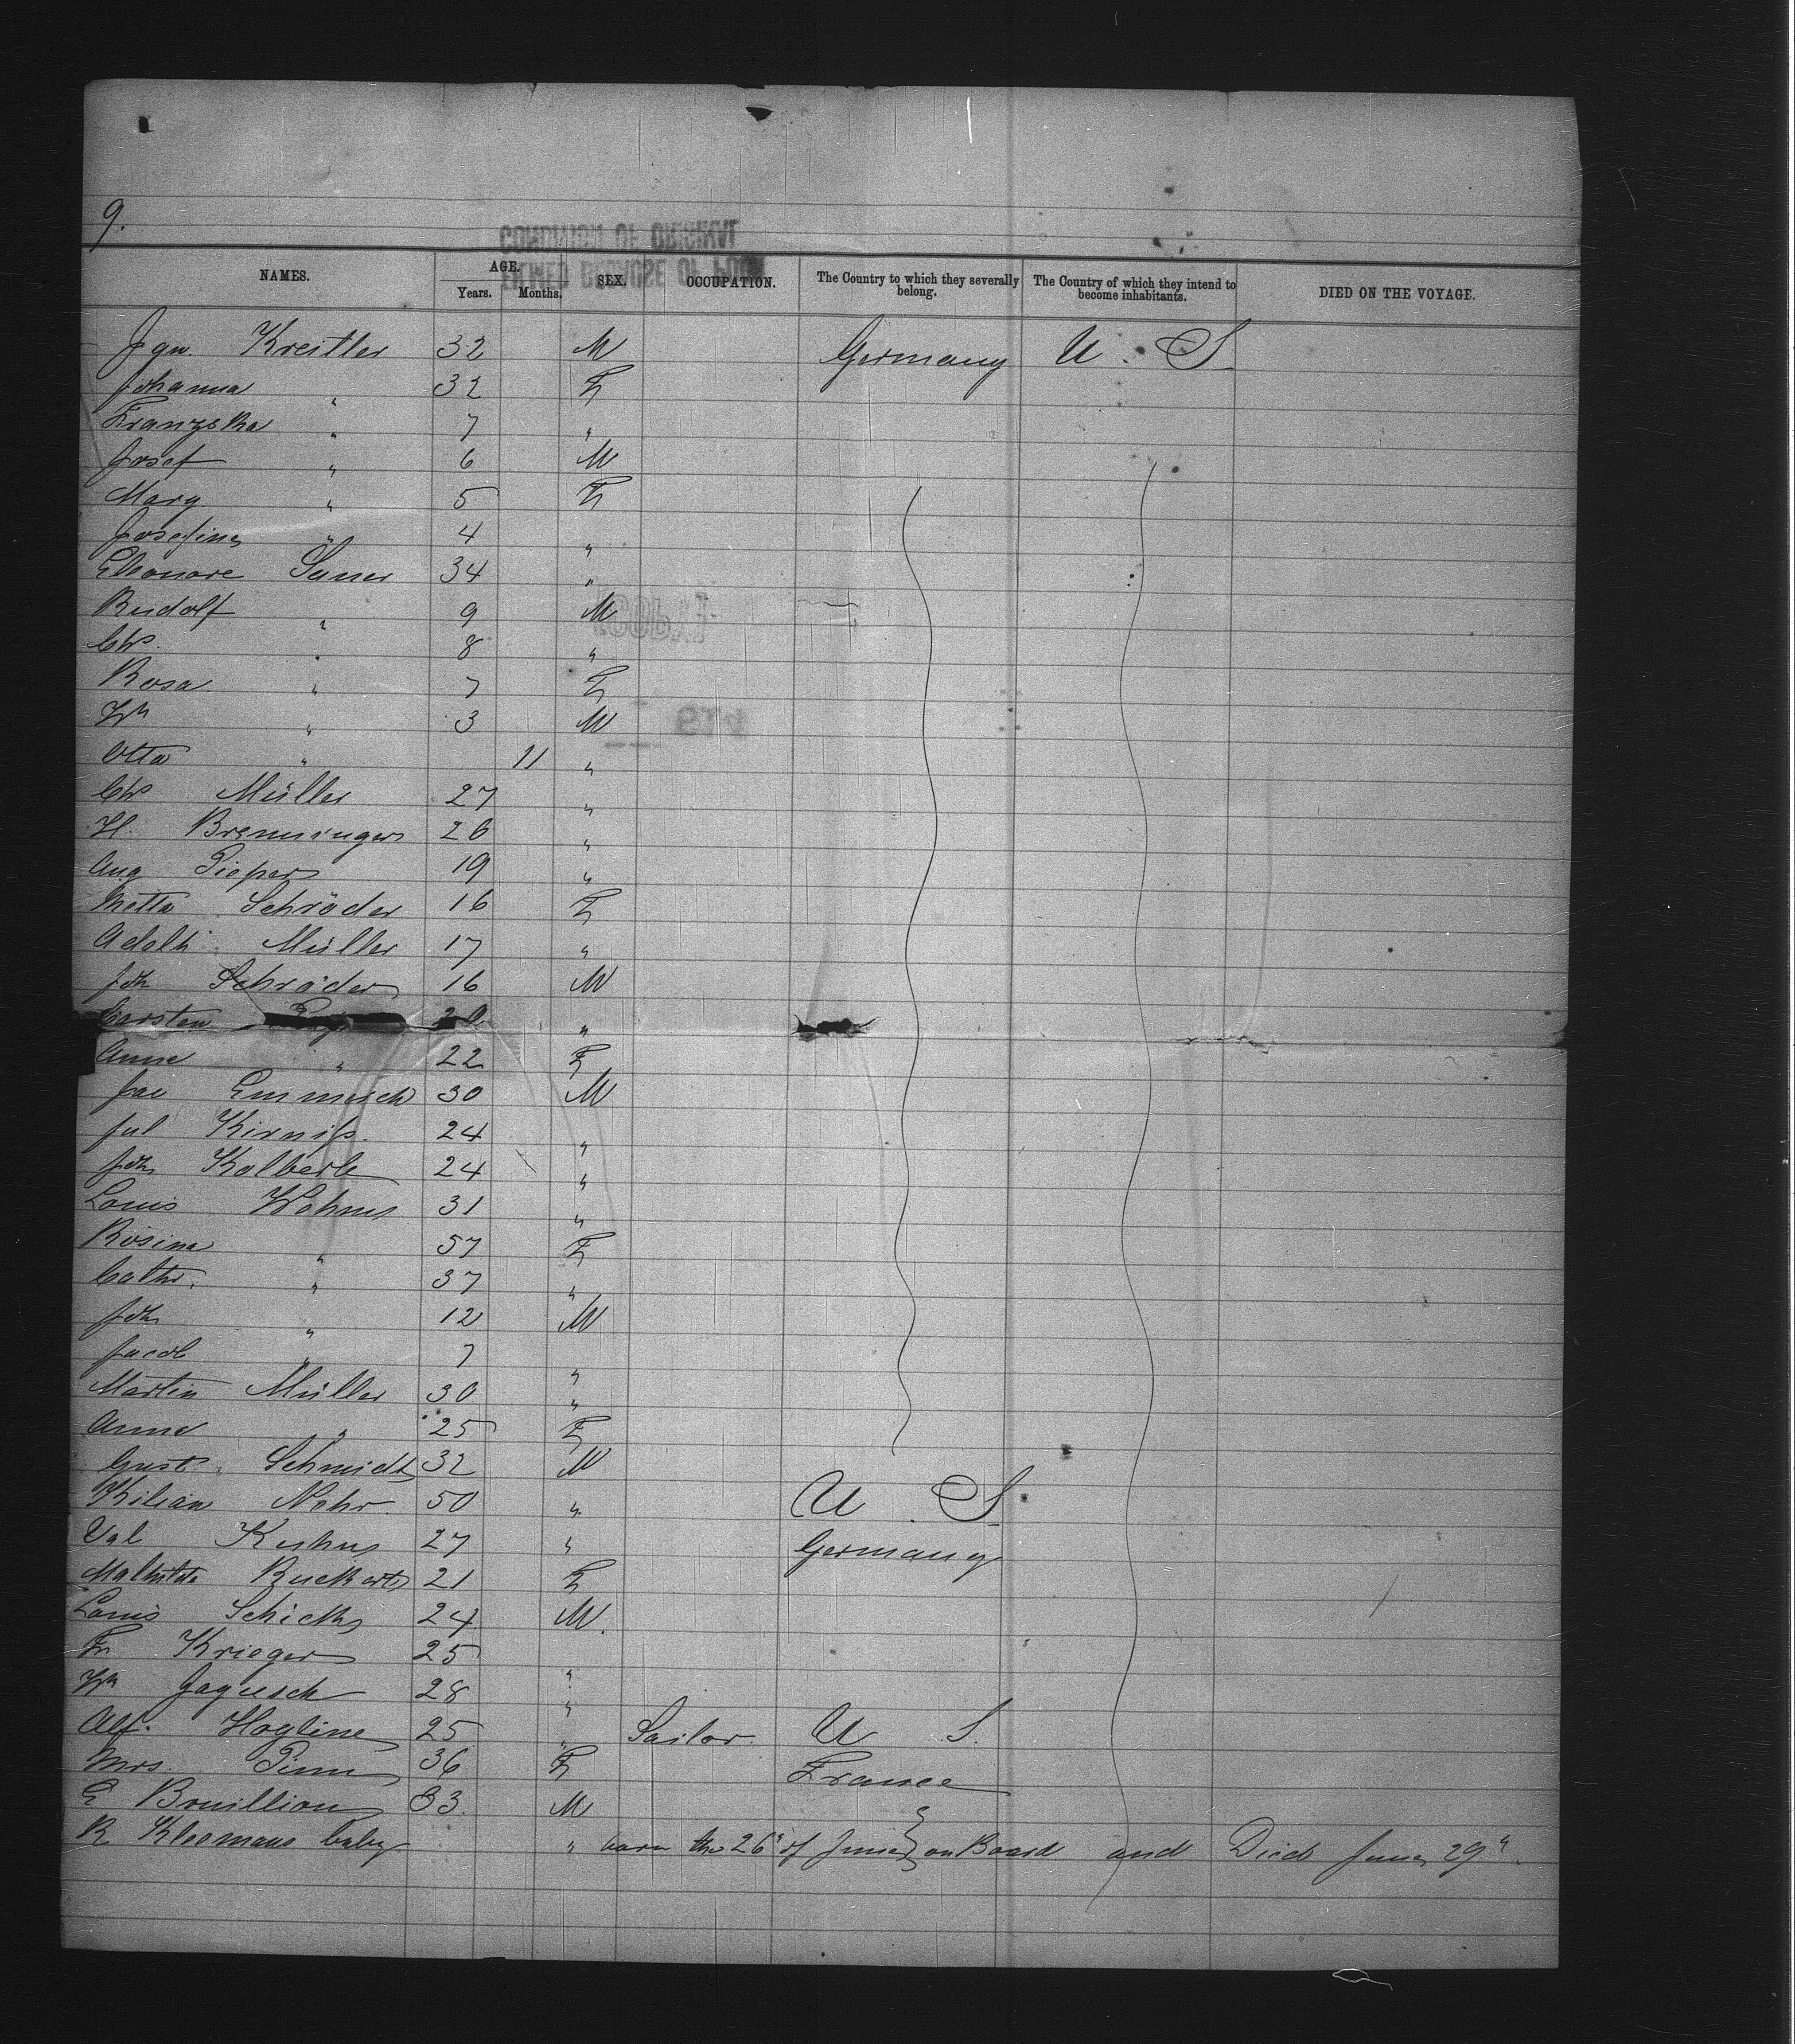 9.
NAMES. AGE. Years. Months. SEX. OCCUPATION. The Country to which they severally belong. The Country of which they intend to become inhabitants. DIED ON THE VOYAGE.
Ign. Kreitler 32 M Germany U. S.
Johanna " 32 F
Franziska " 7 "
Josef " 6 M
Mary " 5 F
Josefine " 4 "
Eleonore 34 "
Rudolf " 9 M
Chs. " 8 "
Rosa " 7 F
Wm " 3 M
Otto " 11 "
Chs Müller 27 "
H. Brenninger 26 "
Aug Pieper 19 "
Metta Schröder 16 F
Adelh. Müller 17 "
Joh Schröder 16 M
Carsten "
Anna " 22 F
Jac Emmerich 30 M
Jul Kirniß. 24 "
Joh Kolberle 24 "
Louis 31 "
Rosina " 57 F
Cathr. " 37 "
Joh " 12 M
Jacob " 7 "
Martin Müller 30 "
Anna " 25 F
Gust. Schmidt 32 M
Kilian Nohr. 50 " U. S.
Val Kuhns 27 " Germany
Mathilde Ruckert 21 F
Louis Schick 24 M.
Fr Krieger 25 "
Wm Jagusch 28 "
Alf. Hogline 25 " Sailor. U S.
Mrs. 36 F France
E Bouillion 33. M "
R Kleemans baby " born the 26" of June on Board and Died June 29".